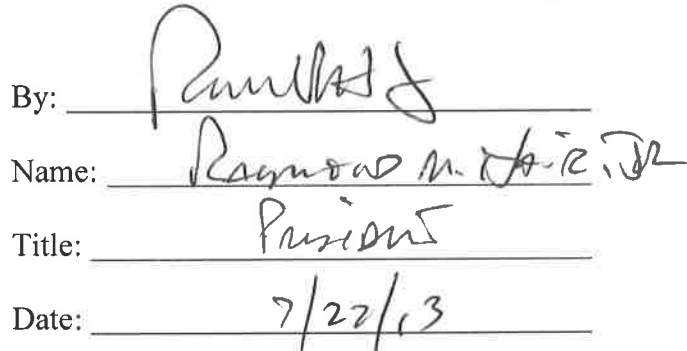 By:
Name: Raymond M. Hair, Jr
Title: President
Date: 7/22/13